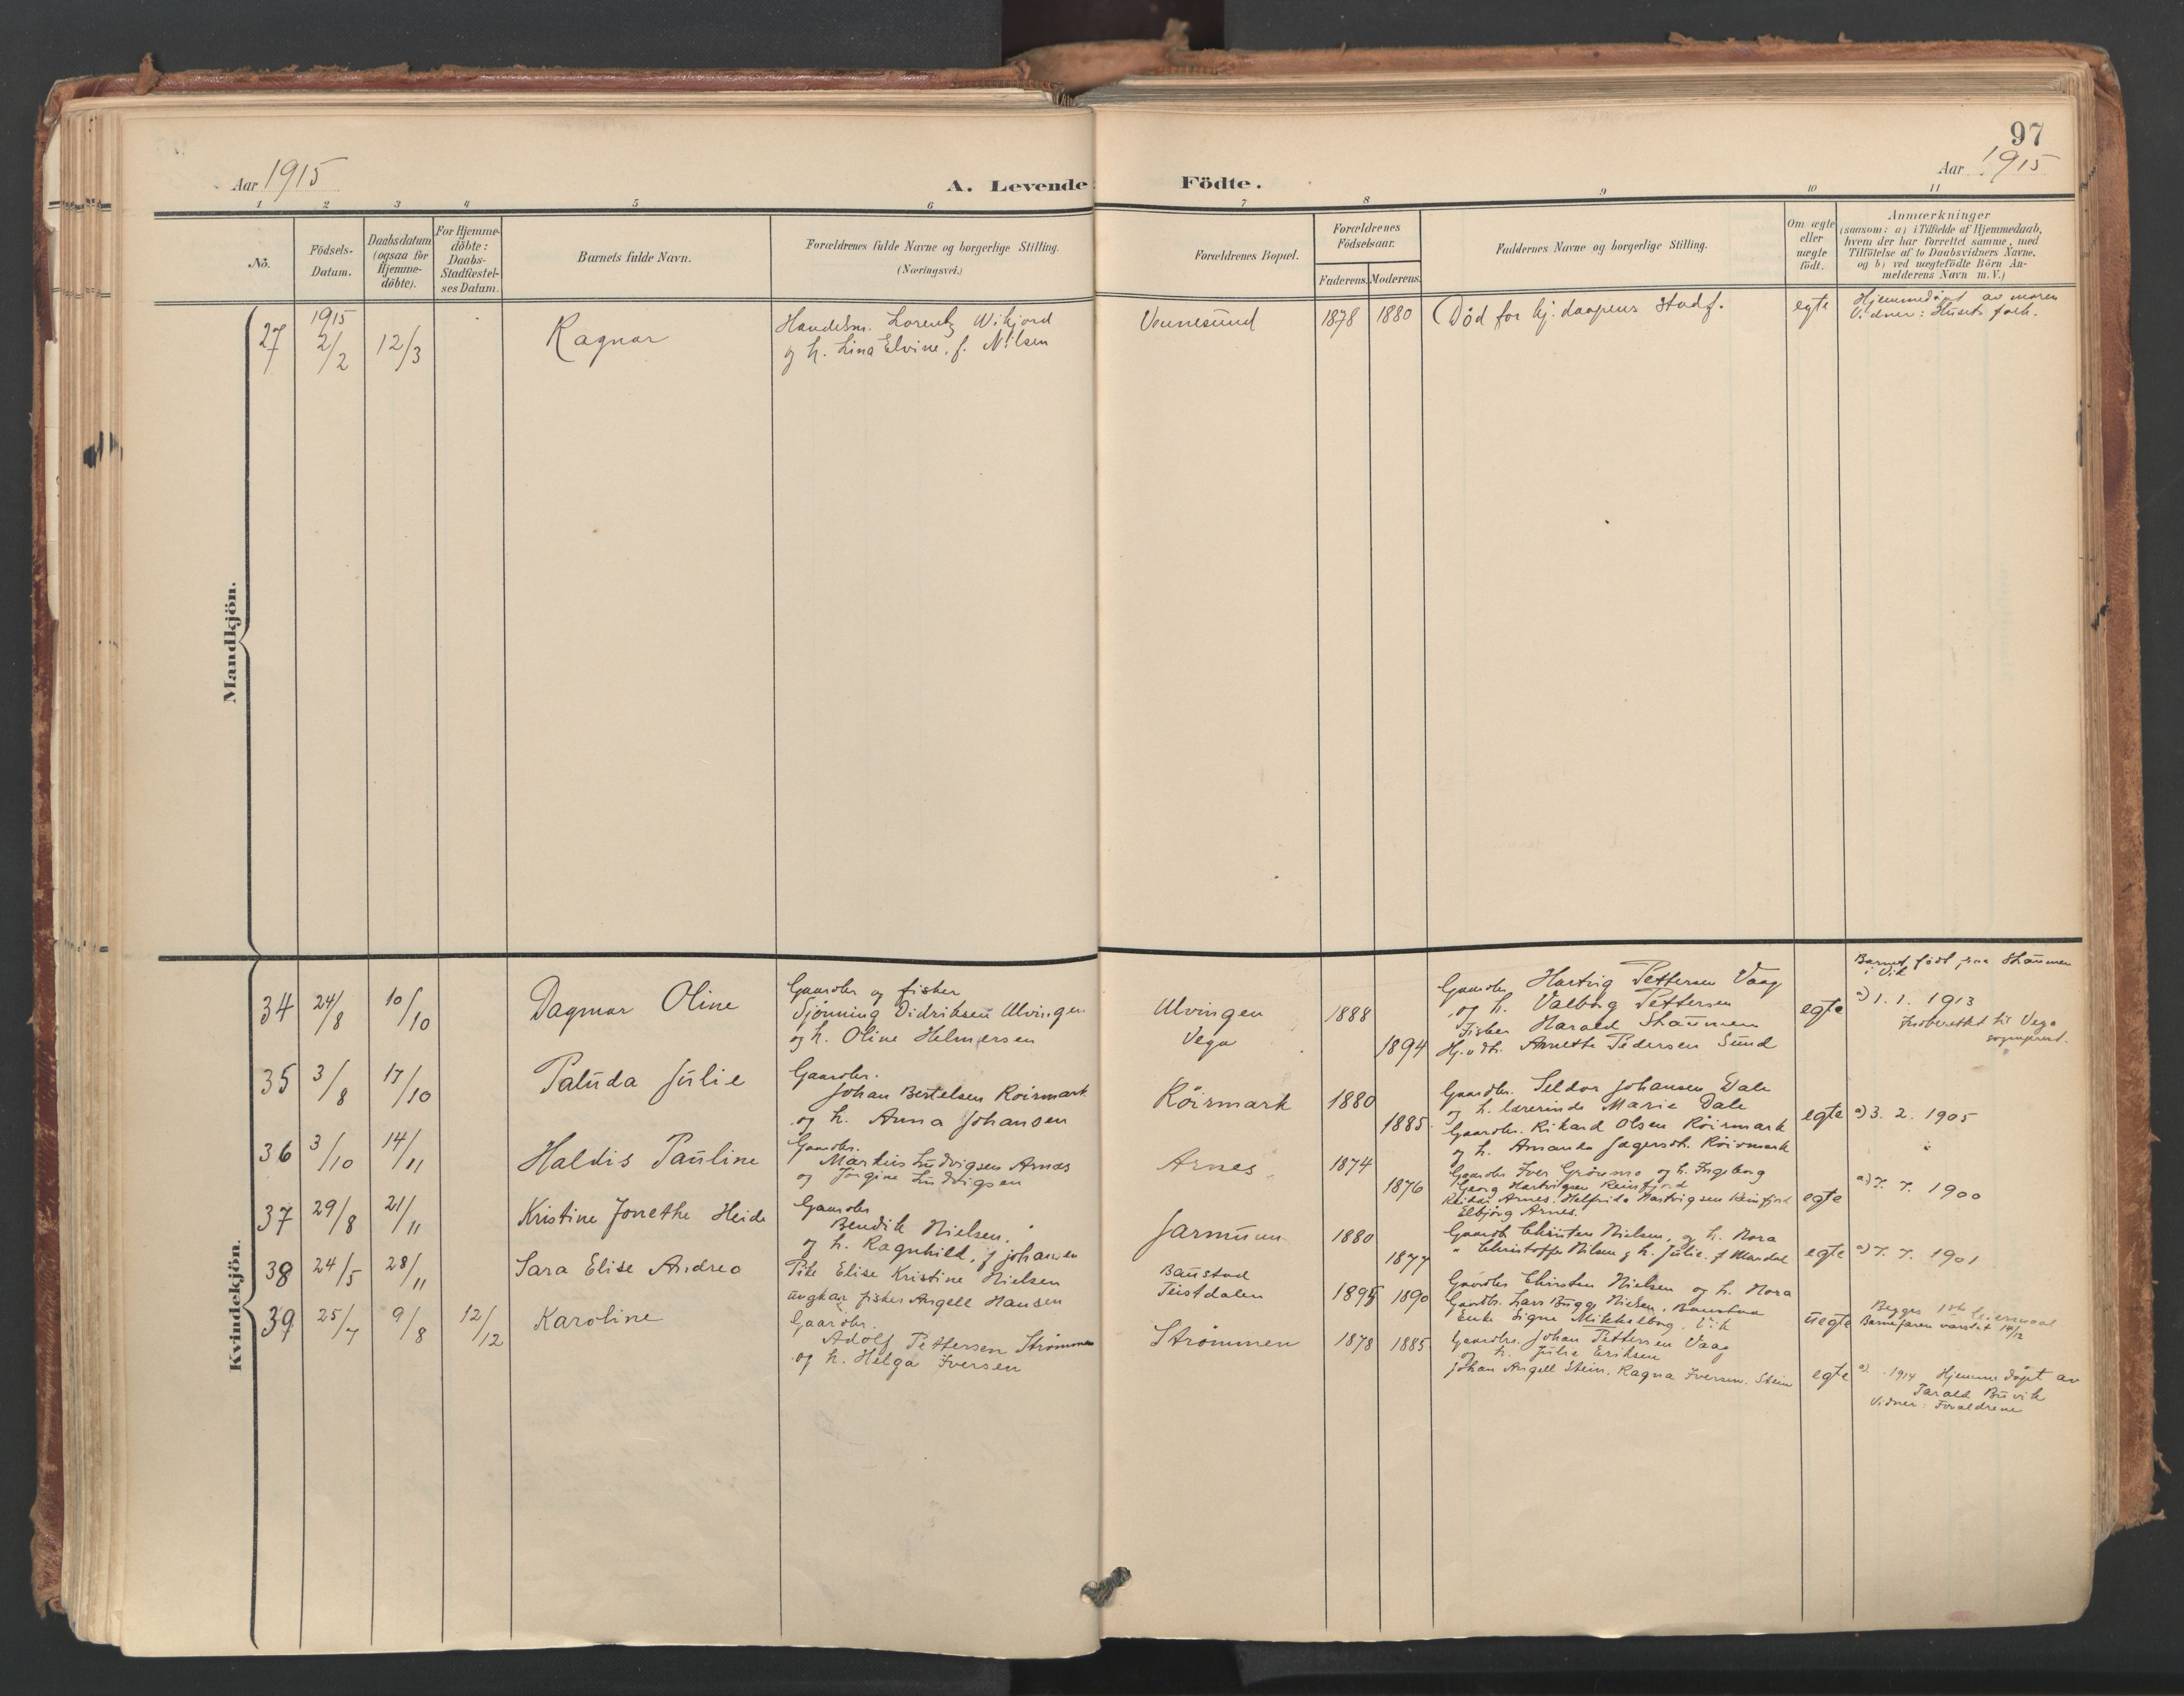 97
Aar 1915
A. Levende Födte.
Aar 1915
1 2 3 4 5 6 7 8 9 10 11
No.
Födsels-
Datum.
Daabsdatum
(ogsaa for
Hjemme-
döbte).
For Hjemme-
döbte:
Daabs-
Stadfæstel-
ses Datum.
Barnets fulde Navn.
Forældrenes fulde Navne og borgerlige Stilling.
(Næringsvei.)
Forældrenes Bopæl.
Forældrenes
Födselsaar.
Faderens. Moderens.
Faddernes Navne og borgerlige Stilling.
Om ægte
eller
uægte
födt.
Anmærkninger
(saasom: a) i Tilfælde af Hjemmedaab,
hvem der har forrettet samme, med
Tilföielse af to Daabsvidners Navne,
og b) ved uægtefödte Börn An-
melderens Navn m. V.)
Mandkjön.
27
1915
2/2
12/3
Ragnar
Handelsm. Lorentz Wikjord
og h. Lina Elvine, f. Nilsen
Vennesund
1878 1880
Död for hj. daapens stadf.
egte
Hjemmedöpt av moren
Vidner: Husets folk.
Kvindekjön.
34
24/8
10/10
Dagmar Oline
Gaardbr og fisker
Sjönning Didriksen Ulvingen
og h. Oline Helmersen
Ulvingen
Vega
1888
1894
Gaardbr. Hartvig Pettersen Vaag
og h. Valborg Pettersen
Fisker Harald Skaumen
Hj.vdt. Annette Pedersen Sund
egte
Barnet födt paa Skaumen
i Vik
a) 1. 1. 1913
Innberettet til Vega
sogneprest.
35
3/8
17/10
Paluda Julie
Gaardbr.
Johan Bertelsen Röirmark
og h. Anna Johansen
Röirmark
1880
1885
Gaardbr. Seldor Johansen Dale
og h. lærerinde Marie Dale
Gaardbr. Rikard Olsen Röirmark
og h. Amanda Jagersdt. Röirmark
egte
a) 3. 2. 1905
36
3/10
14/11
Haldis Pauline
Gaardbr.
Markus Ludvigsen Arnes
og Jörgine Ludvigsen
Arnes
1874
1876
Gaardbr Iver Grönmo og h. Ingeborg
Georg Hartvigsen Reinfjord
Reidar Arnes. Helfrida Hartvigsen Reinfjord
Elbjörg Arnes.
egte
a) 7. 7. 1900
37
29/8
21/11
Kristine Jonethe Heide
Gaardbr
Bendik Nielsen,
og h. Ragnhild, f Johansen
Jarmunn
1880
1877
Gaardb Christen Nielsen, og h. Nora
" Christoffer Nilsen g h. Julie. f Mardal
egte
a) 7. 7. 1901
38
24/5
28/11
Sara Elise Andrea
Pike Elise Kristine Nielsen
ungkar fisker Angell Hansen
Baustad
Teistdalen
1895 1890
Gaardbr Christen Nielsen og h. Nora
Gaardbr. Lars Bugge Nielsen, Baustad
Enke Signe Mikkelborg. Vik
uegte
Begges 1ste leiermaal
Barnefaren varslet 14/12
39
25/7
9/8
12/12
Karoline
Gaardbr.
Adolf Pettersen Strömmen
og h. Helga Iversen
Strömmen
1878 1885
Gaardbr. Johan Pettersen Vaag
og h. Julie Eriksen
Johan Angell Stein. Ragna Iversen. Stein
egte
a) 1914 Hjemmedöpt av
Tarald Buvik
Vidner: Foraldrene